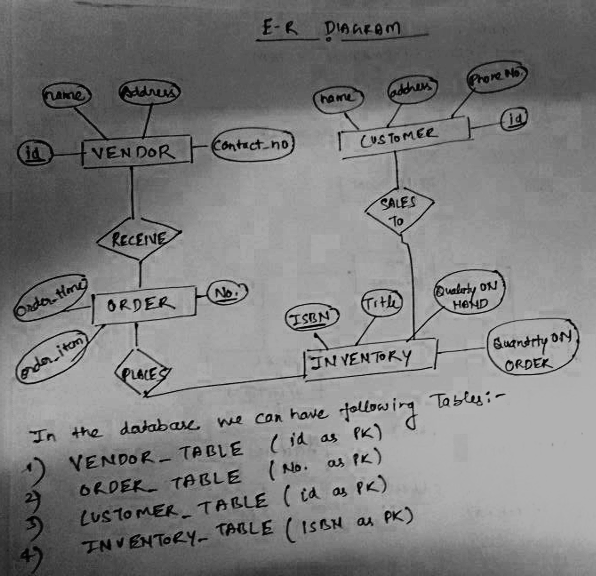 E-R DIAGRAM
name
Address
id
VENDOR
Contact_no
name
address
Phone No.
CUSTOMER
id
RECEIVE
SALES
TO
order_time
ORDER
No.
order_item
PLACES
ISBN
Title
Quality ON
HAND
INVENTORY
Quantity ON
ORDER
In the database we can have following Tables:-
1) VENDOR_TABLE (id as PK)
2) ORDER_TABLE (No. as PK)
3) CUSTOMER_TABLE (id as PK)
4) INVENTORY_TABLE (ISBN as PK)